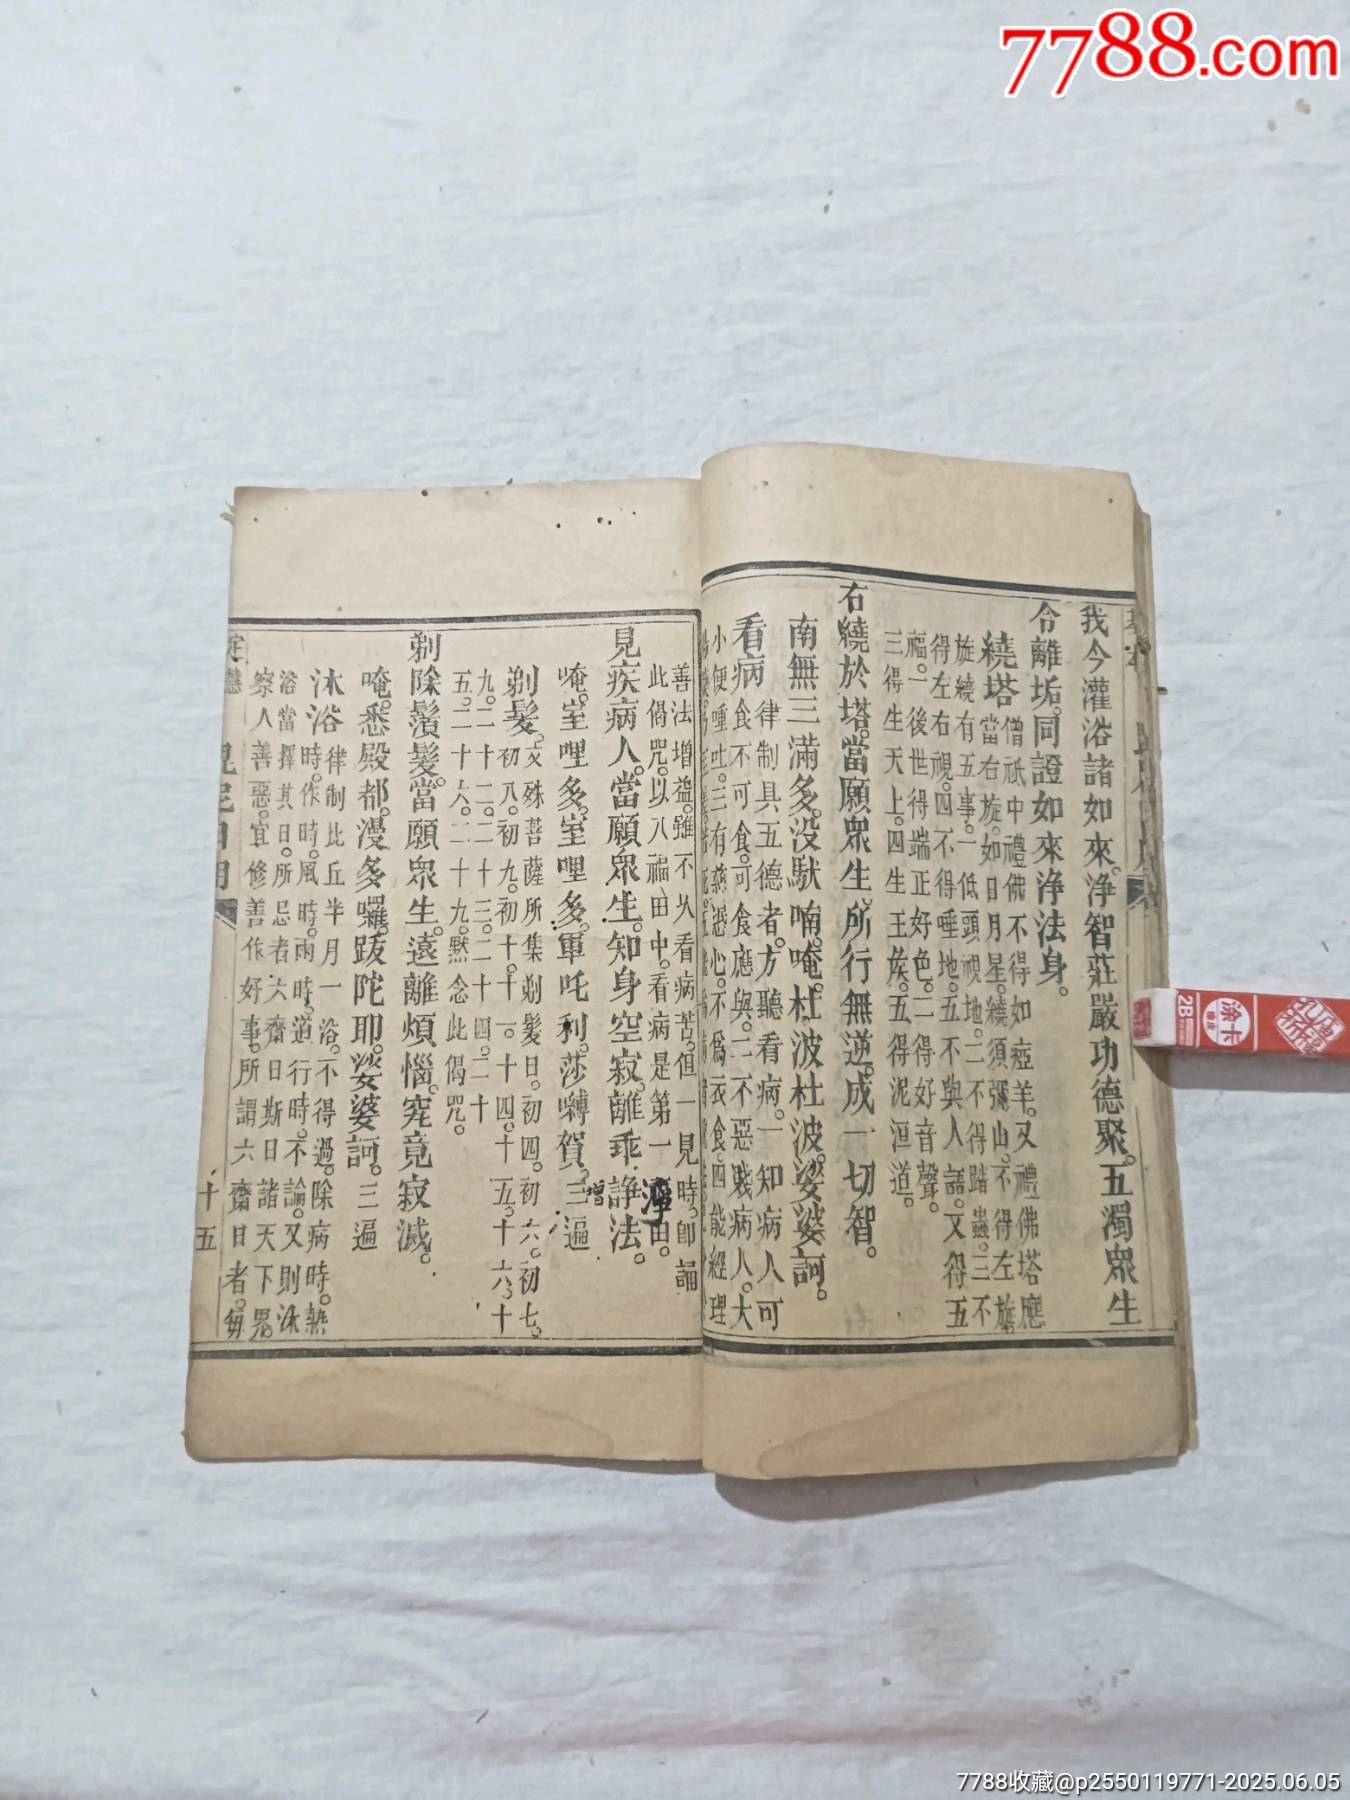 7788.com
我今灌浴諸如來。淨智莊嚴功德聚。五濁眾生
令離垢。同證如來淨法身。
繞塔
僧祇中禮佛不得如瘂羊。又禮佛塔應
當右旋。如日月星繞須彌山。不得左旋
旋繞有五事。一低頭視地。二不得踏蟲。三不
得左右視。四不得唾地。五不與人語。又得五
福。一後世得端正好色。二得好音聲。
三得生天上。四生王侯。五得泥洹道。
右繞於塔。當願眾生。所行無逆。成一切智。
南無三滿多。沒馱喃。唵。杜波杜波。娑婆訶。
看病
律制具五德者。方聽看病。一知病人可
食不可食。可食應與。二不惡賤病人。大
小便唾吐。三有慈愍心。不為衣食。四能經理
善法增益。雖不久看病苦。但一見時。即誦
此偈咒。以八福田中。看病是第一福田。
見疾病人。當願眾生。知身空寂。離乖諍法。
唵。室哩多。室哩多。軍吒利。莎嚩賀。三遍
增
剃髮
文殊菩薩所集剃髮日。初四。初六。初七。
初八。初九。初十。十一。十四。十五。十六。十
九。二十二。二十三。二十四。二十
五。二十六。二十九。默念此偈咒。
剃除鬚髮。當願眾生。遠離煩惱。究竟寂滅。
唵。悉殿都。漫多囉。跋陀耶。娑婆訶。三遍
沐浴
律制比丘半月一浴。不得過。除病時。熱
時。作時。風時。雨時。道行時。不論。又則沐
浴當擇其日。所忌者六齋日斯日諸天下界。
察人善惡。宜修善作好事。所謂六齋日者。每
毘尼日用
十五
2B
涂卡
7788收藏@p2550119771-2025.06.05